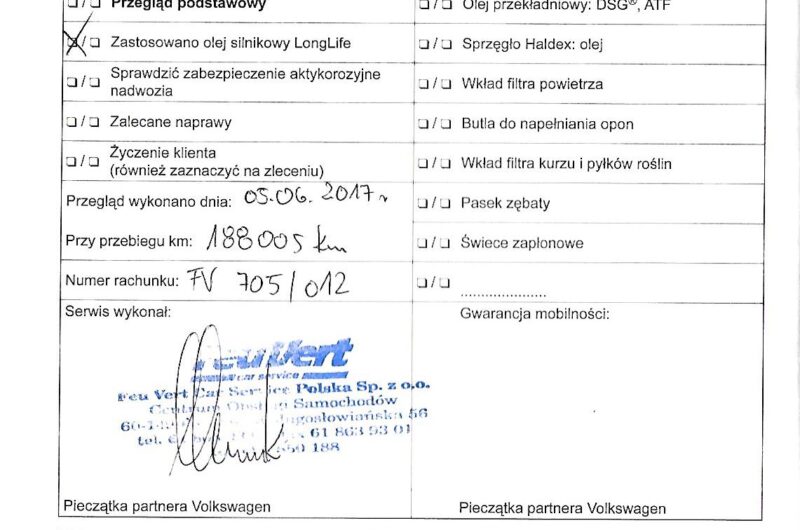 ❏ / ❏ Przegląd podstawowy
❏ / ❏ Zastosowano olej silnikowy LongLife
❏ / ❏ Sprawdzić zabezpieczenie aktykorozyjne
nadwozia
❏ / ❏ Zalecane naprawy
❏ / ❏ Życzenie klienta
(również zaznaczyć na zleceniu)
Przegląd wykonano dnia: 05.06.2017r
Przy przebiegu km: 188005 km
Numer rachunku: FV 705/012
Serwis wykonał:
Feu Vert
car service
Feu Vert Car Service Polska Sp. z o.o.
Centrum Obsługi Samochodów
Jugosłowiańska 56
tel. 61 863 93 01
188
Pieczątka partnera Volkswagen
❏ / ❏ Olej przekładniowy: DSG®, ATF
❏ / ❏ Sprzęgło Haldex: olej
❏ / ❏ Wkład filtra powietrza
❏ / ❏ Butla do napełniania opon
❏ / ❏ Wkład filtra kurzu i pyłków roślin
❏ / ❏ Pasek zębaty
❏ / ❏ Świece zapłonowe
❏ / ❏ ......................
Gwarancja mobilności:
Pieczątka partnera Volkswagen